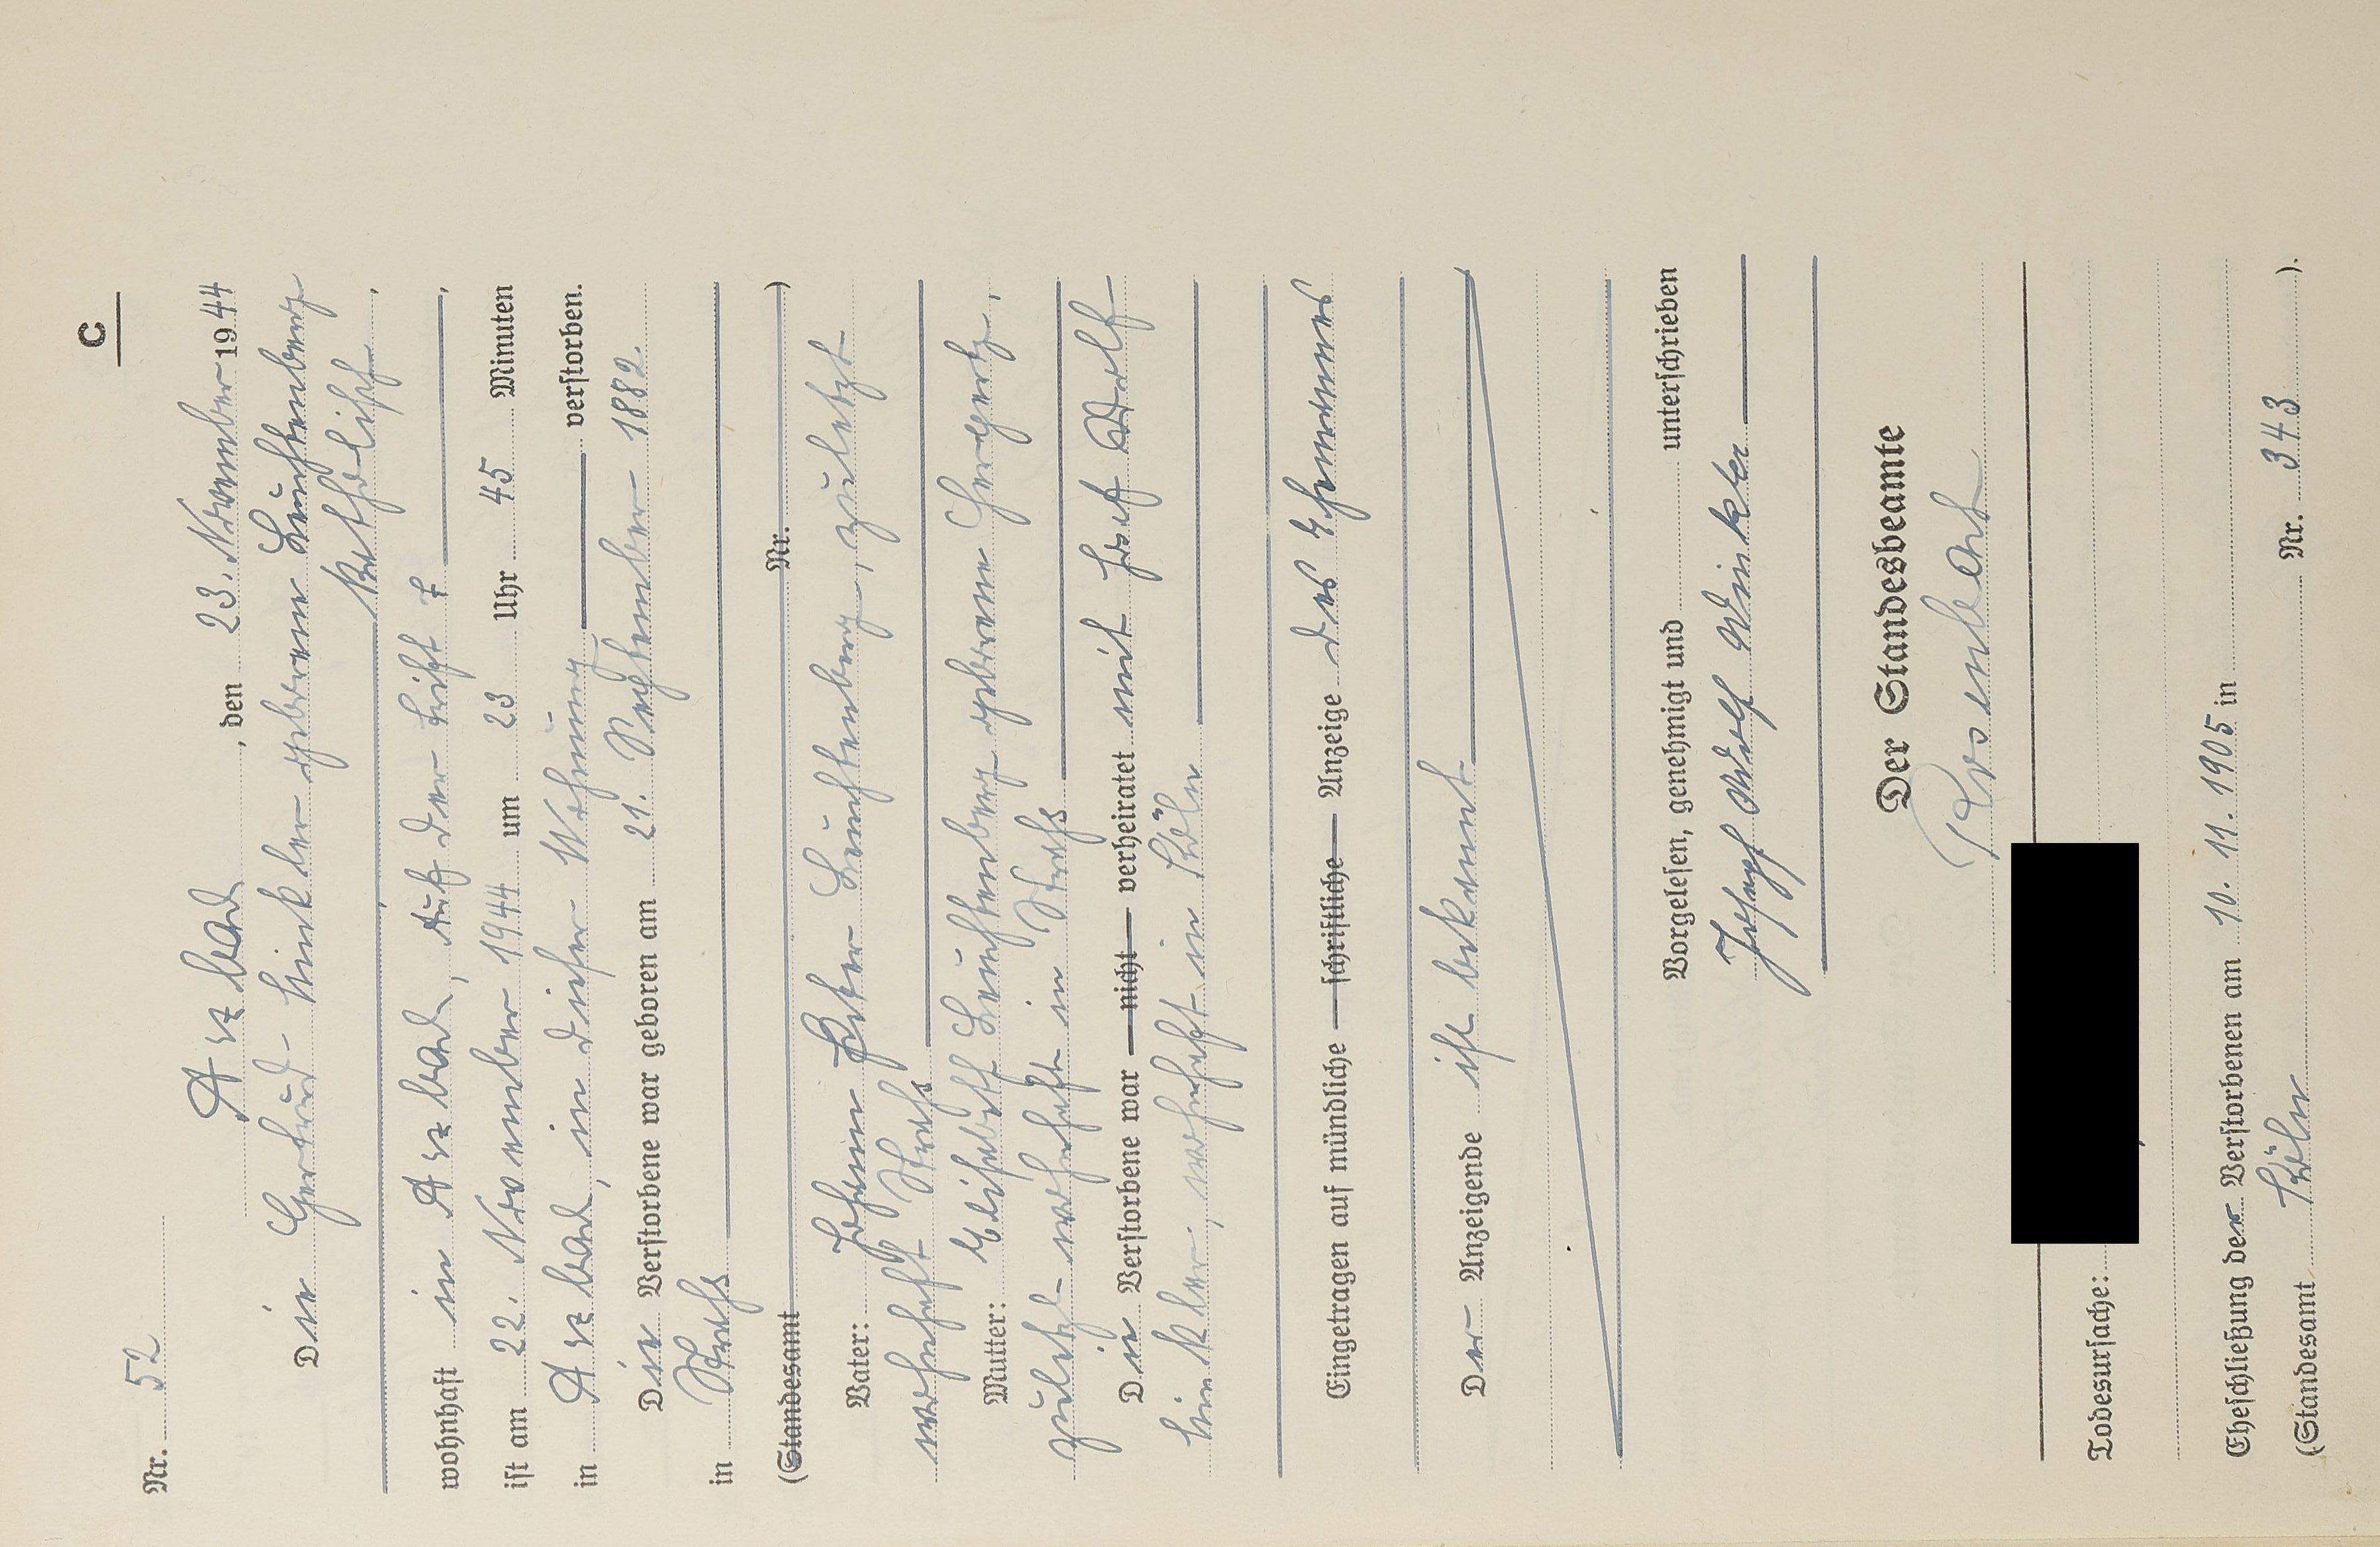 C
Nr. 52
Asbach, den 23. November 1944
Die Gertrud Winkler geborene Leuchtenberg
katholisch,
wohnhaft in Asbach, Auf der Heide 7,
ist am 22. November 1944 um 23 Uhr 45 Minuten
in Asbach, in dieser Wohnung verstorben.
Die Verstorbene war geboren am 21. September 1882.
in
(Standesamt Nr. )
Vater: Johann Peter Leuchtenberg, zuletzt
wohnhaft
Mutter: Elisabeth Leuchtenberg geborene,
zuletzt wohnhaft in
Die Verstorbene war — nicht — verheiratet mit Josef Adolf
Winkler, wohnhaft in Köln
Eingetragen auf mündliche — schriftliche — Anzeige des Ehemannes
Der Anzeigende ist bekannt
Vorgelesen, genehmigt und unterschrieben
Joseph Adolf Winkler
Der Standesbeamte
Todesursache:
Eheschließung der Verstorbenen am 10. 11. 1905 in
(Standesamt Köln Nr. 343 ).